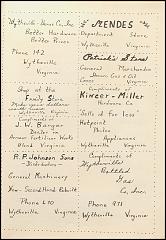 Wytheville Home Co., Inc.
Better Hardware
Better Prices
Phone 142
Wytheville
Virginia
Shop at the
Family Store
Wytheville, Virginia
Compliments of
J. W. Bangor
Dealer in
Armour Fertilizer Works
Bland Virginia
R. P. Johnson Sons
Distributors
General Machinery
New-Second Hand-Rebuilt
Phone 670
Wytheville Virginia
MENDES
Department Store
Wytheville
Virginia
Patrick's Store
General Merchandise
Gas & Oil
Virginia
Compliments of
Kincer-Miller
Hardware Co.
Sells it for less
Philco
Appliances
Wytheville Virginia
Compliments of
Wytheville
Bottled
Gas
Co., Inc.
Phone 971
Wytheville Virginia